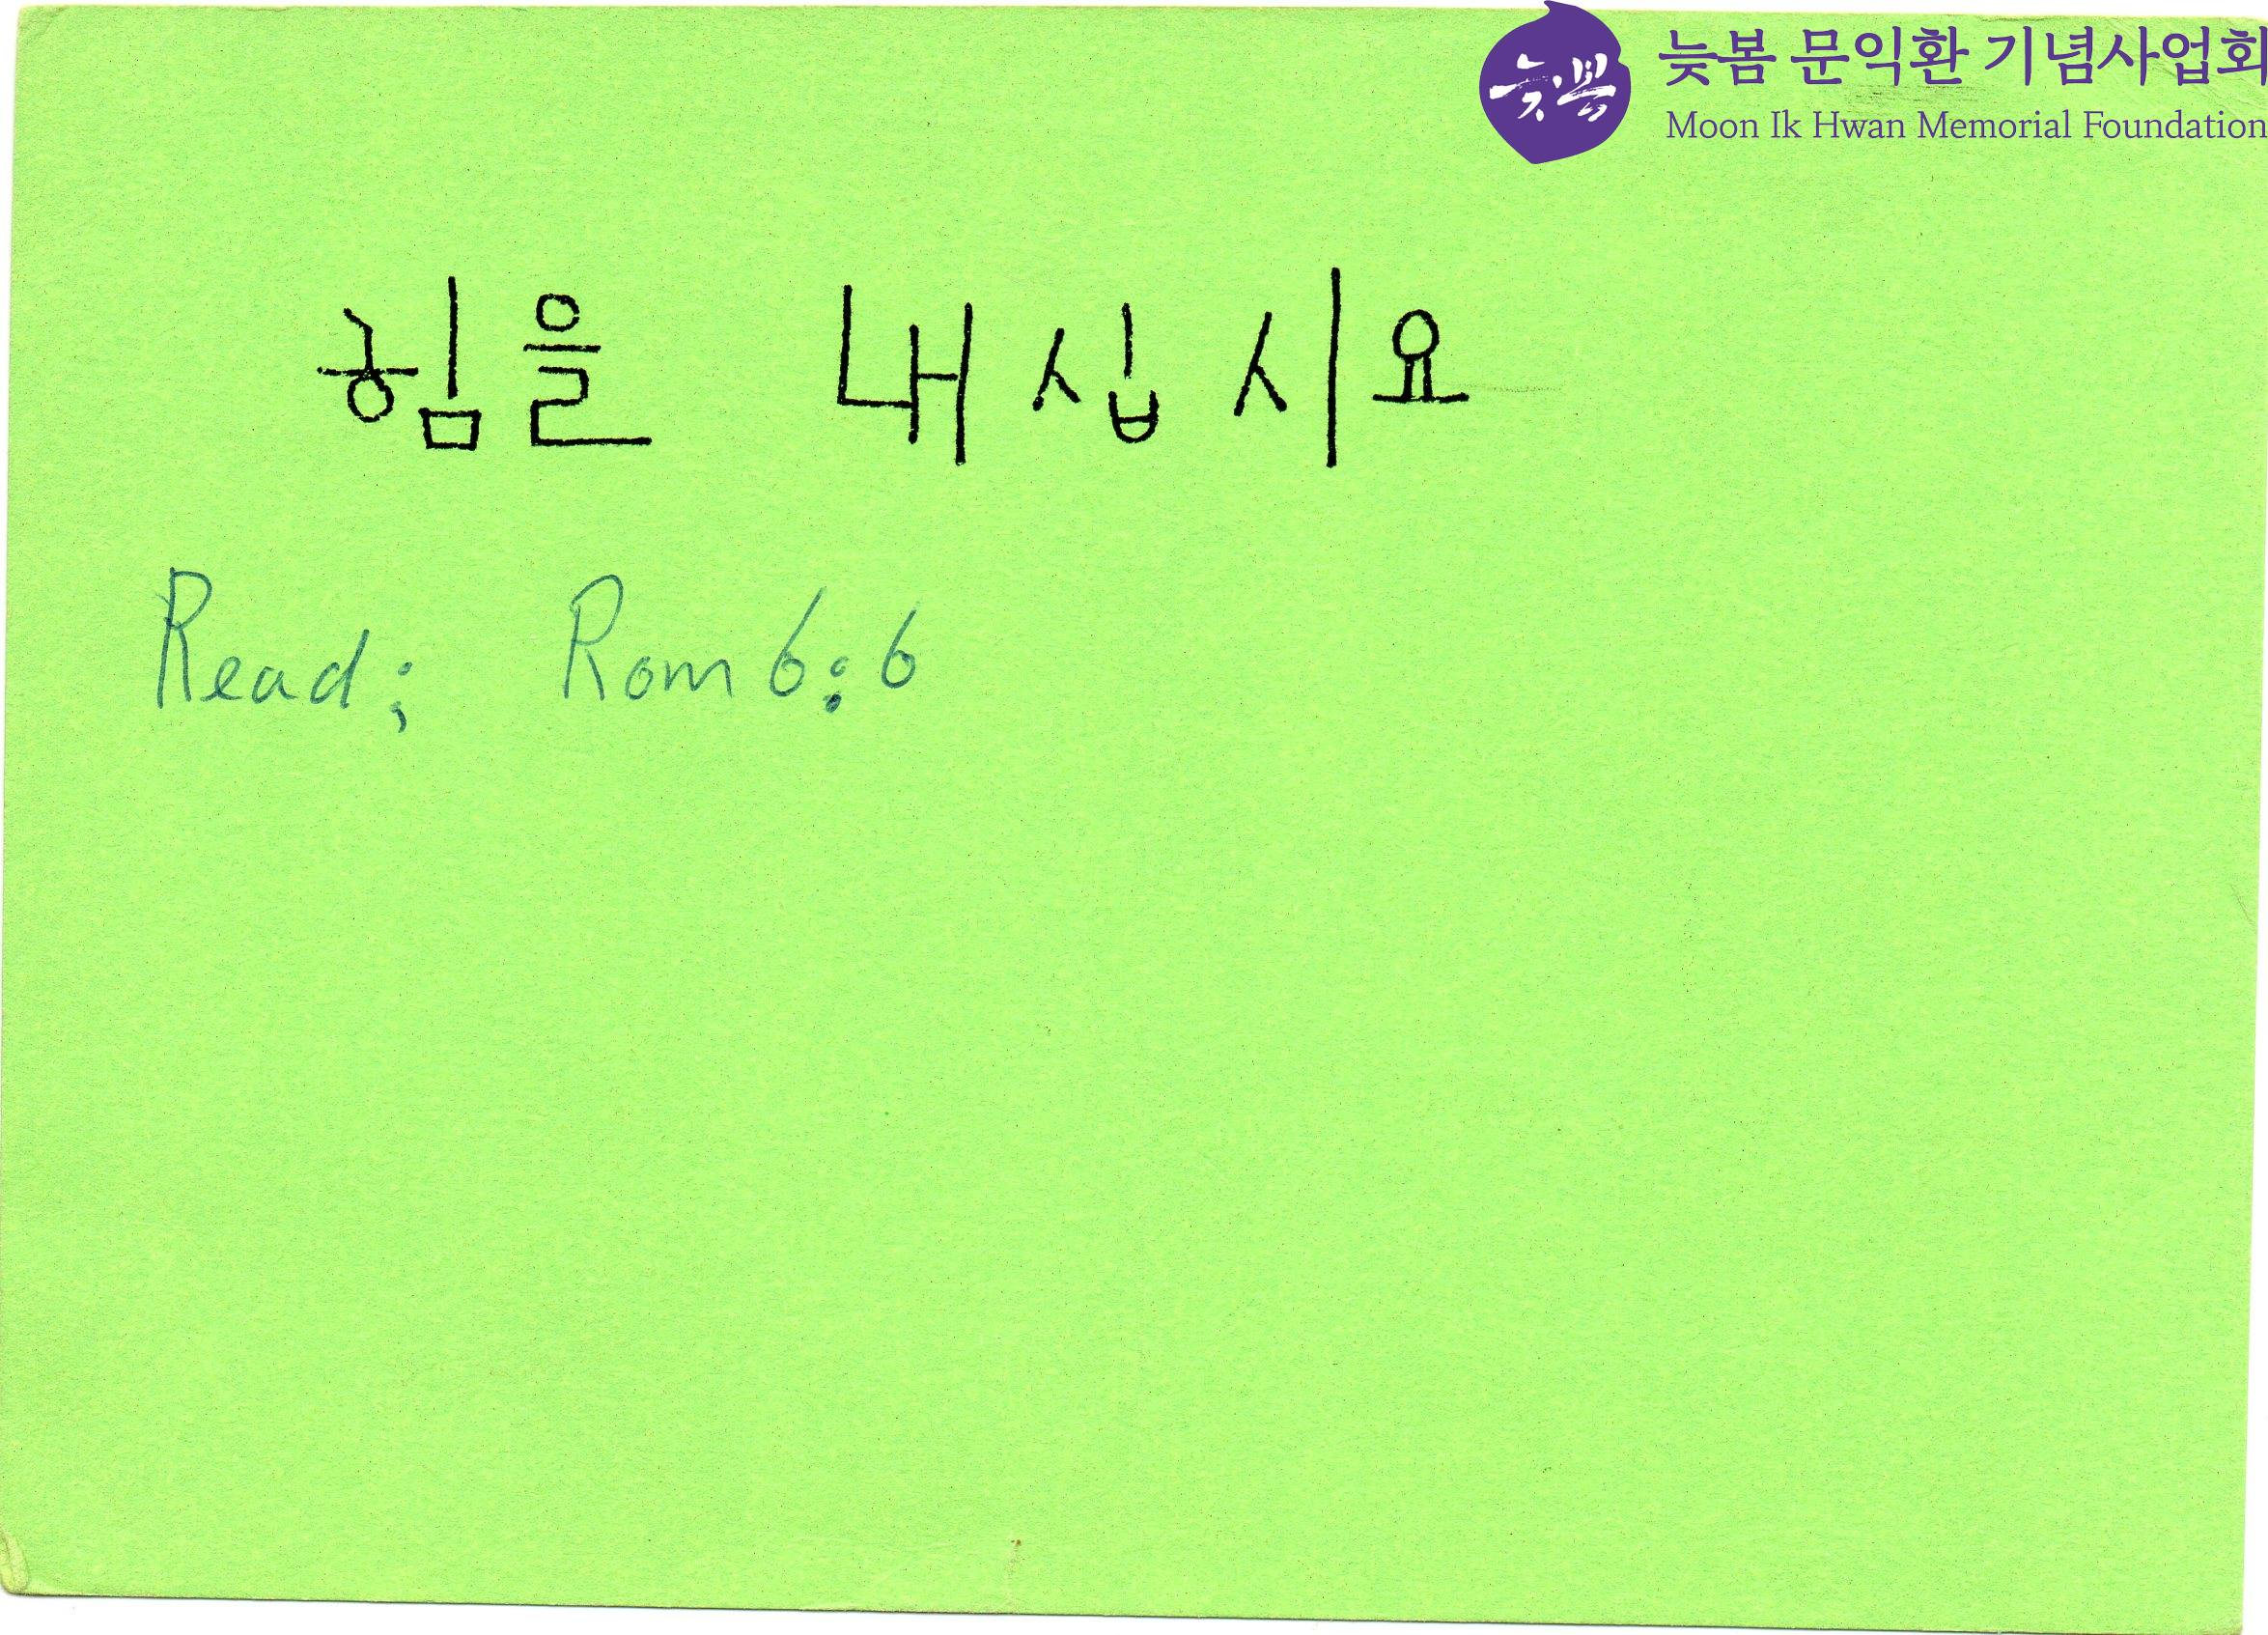 늦봄 늦봄 문익환 기념사업회
Moon Ik Hwan Memorial Foundation
힘을 내십시요
Read; Rom 6:6